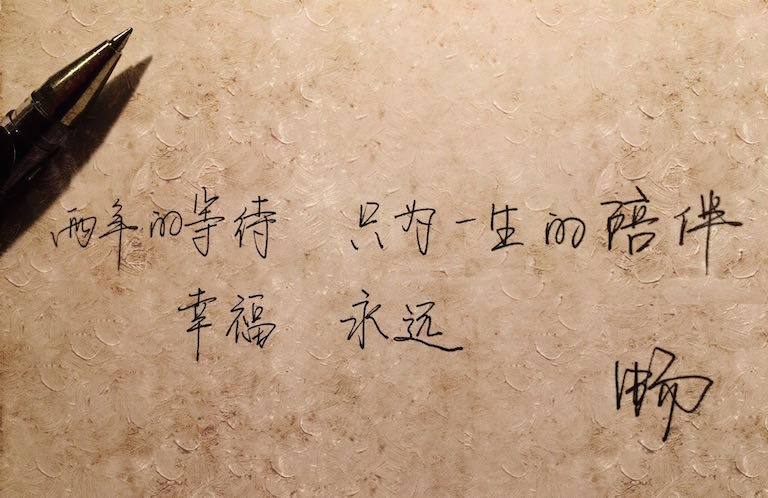 两年的等待 只为一生的陪伴
幸福 永远
畅